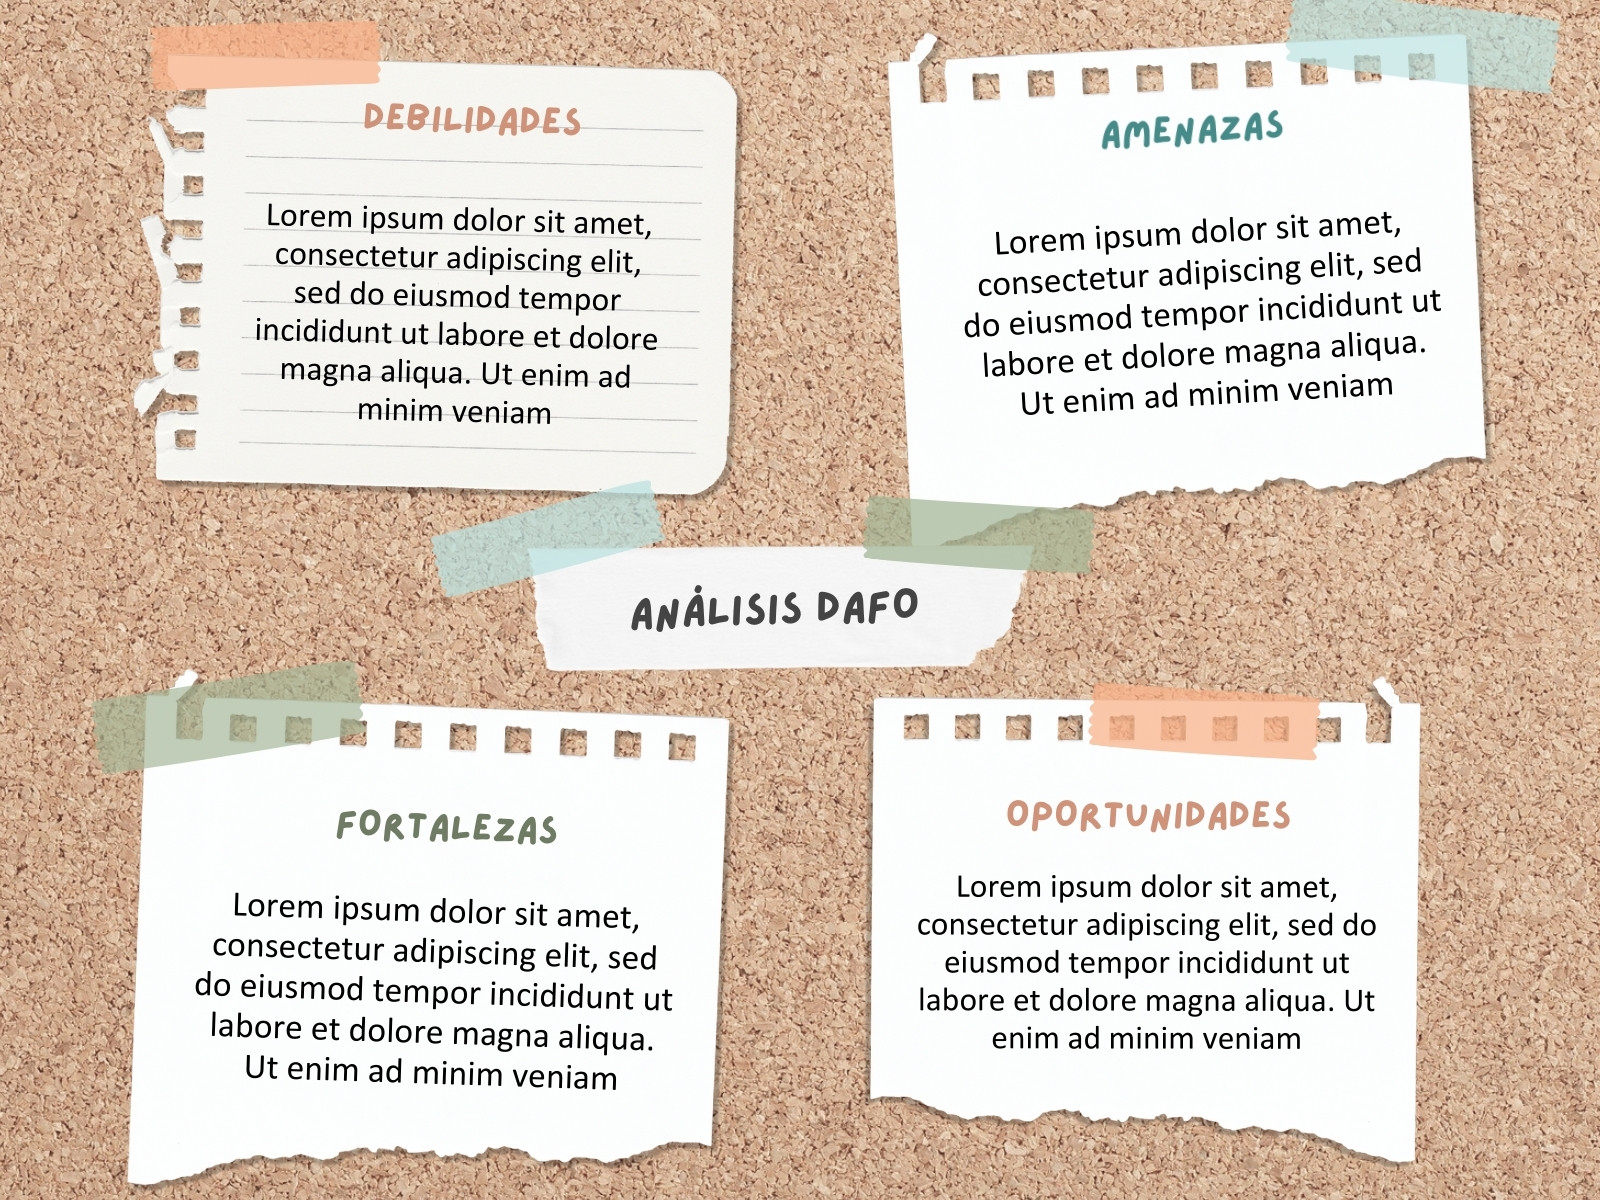 DEBILIDADES
Lorem ipsum dolor sit amet,
consectetur adipiscing elit,
sed do eiusmod tempor
incididunt ut labore et dolore
magna aliqua. Ut enim ad
minim veniam
AMENAZAS
Lorem ipsum dolor sit amet,
consectetur adipiscing elit, sed
do eiusmod tempor incididunt ut
labore et dolore magna aliqua.
Ut enim ad minim veniam
ANÁLISIS DAFO
FORTALEZAS
Lorem ipsum dolor sit amet,
consectetur adipiscing elit, sed
do eiusmod tempor incididunt ut
labore et dolore magna aliqua.
Ut enim ad minim veniam
OPORTUNIDADES
Lorem ipsum dolor sit amet,
consectetur adipiscing elit, sed do
eiusmod tempor incididunt ut
labore et dolore magna aliqua. Ut
enim ad minim veniam